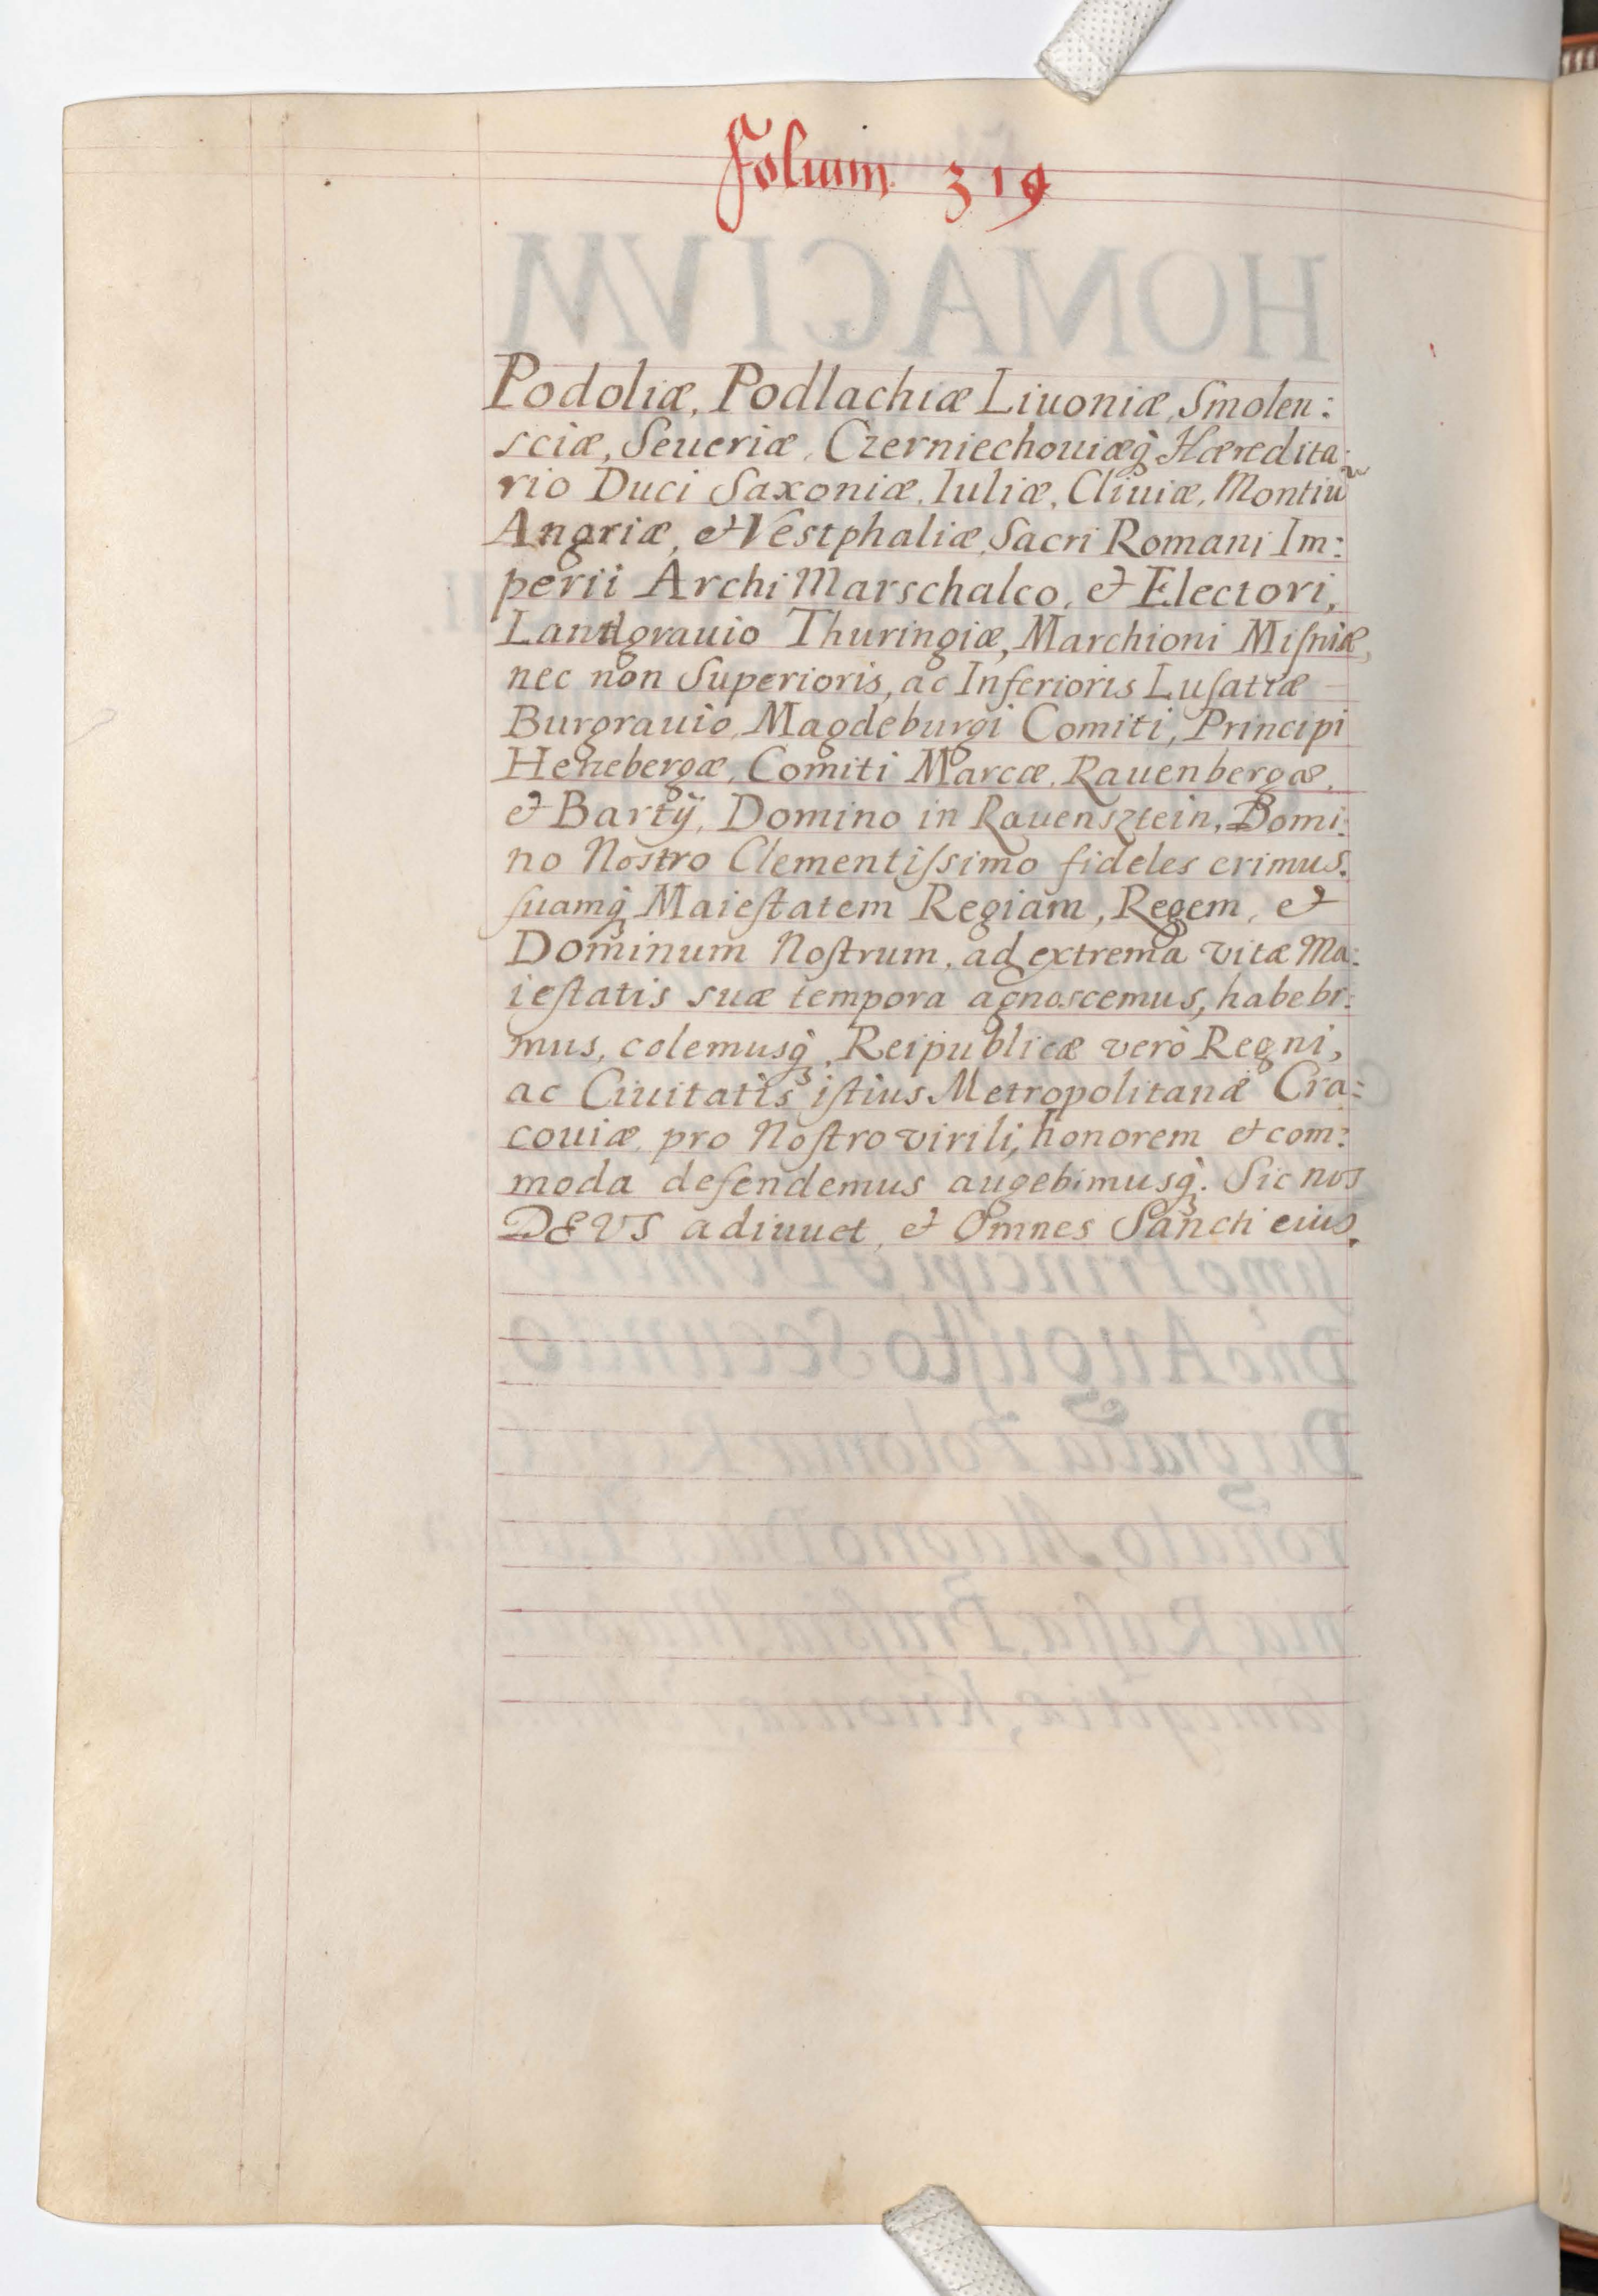 Folium. 319
Podoliæ, Podlachiæ Liuoniæ, Smolen:
sciæ, Seueriæ, Czerniechouiæq̀ Hæredita:
rio Duci Saxoniæ, Iuliæ, Cliuiæ, Montiū
Angriæ, et Vestphaliæ, Sacri Romani Im:
perii Archi Marschalco, et Electori,
Landgrauio Thuringiæ, Marchioni Miſniæ,
nec non Superioris, ac Inferioris Luſatiæ
Burgrauio Magdeburgi Comiti, Principi
Henebergæ, Comiti Marcæ, Rauenbergæ,
et Bartÿ, Domino in Rauensztein, Domi:
no Nostro Clementiſsimo fideles erimus.
ſuamq̀ Maieſtatem Regiam, Regem, et
Dominum Noſtrum, ad extrema vitæ Ma:
ieſtatis suæ tempora agnoscemus, habebi:
mus, colemusq̀, Reipublicæ verò Regni,
ac Ciuitatis iſtius Metropolitanæ Cra:
couiæ, pro Noſtro virili, honorem et com:
moda defendemus augebimusq̀. Sic nos
DEVS adiuuet, et Omnes Sancti eius.